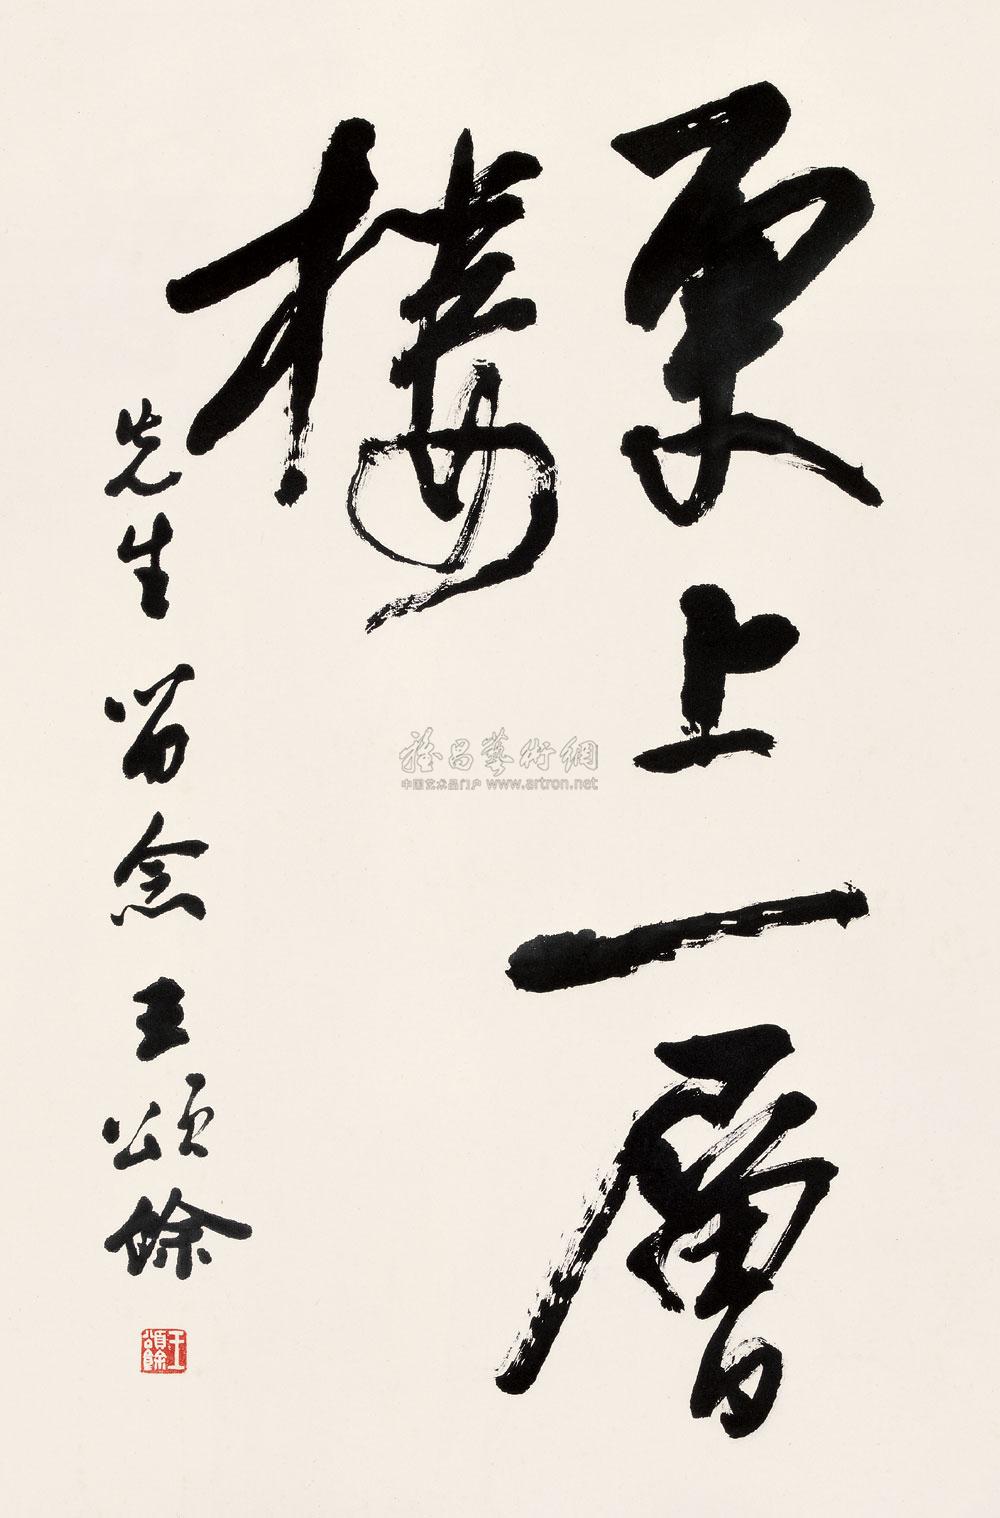 更上一層
樓
先生留念王頌餘
王頌餘
雅昌藝術網
中国艺术品门户 www.artron.net